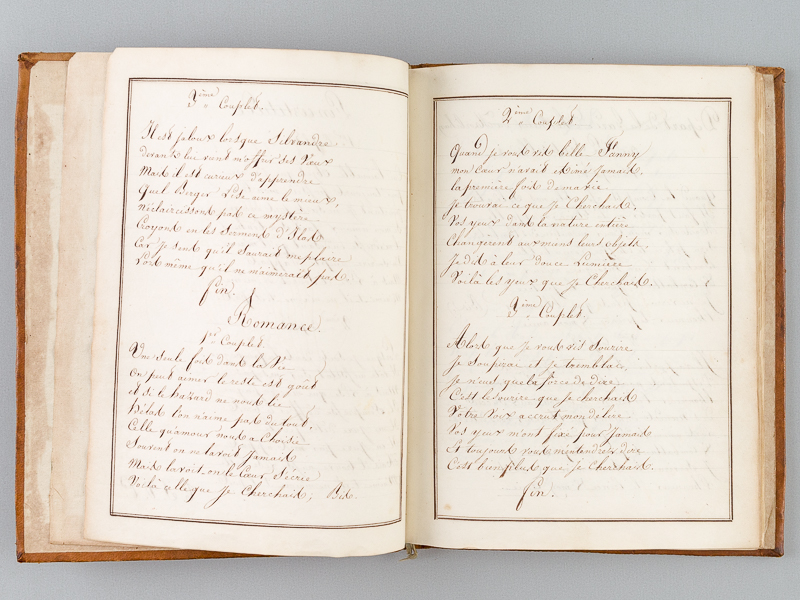 3ème Couplet.
Il est jaloux lorsque Silvandre
devant lui vient m'offrir ses Vœux
Mais il est curieux d'apprendre
Quel Berger j'aime le mieux,
N'éclaircissons pas ce mystère
Croyons en les Serments d'Ilas
Car je sens qu'il Saurait me plaire
Lors même qu'il ne m'aimerait pas.
fin.
Romance.
1er Couplet
Une seule fois dans la Vie
On peut aimer le reste est gout
et si le hazard ne nous lie
Hélas l'on n'aime pas du tout.
Celle qu'amour nous a Choisie
Souvent on ne la voit Jamais
Mais la voit on le Cœur S'écrie
Voilà celle que Je Cherchais, Bis.
2ème Couplet.
Quand je vous vis belle Fanny
mon Cœur n'avait estimé Jamais
la première fois de ma vie
Je trouvai ce que Je Cherchais,
Vos yeux dans la nature entière
Changerent aux miens leurs objets
Je dis à leur douce Lumière
Voilà les yeux que Je Cherchais.
3ème Couplet.
Alors que Je vous vis Sourire
Je Soupirai et Je tremblais,
Je n'eus que la force de dire
C'est le sourire que je cherchais
Votre Voix accrut mon délire
Vos yeux m'ont fixé pour Jamais
Et toujours vous m'entendrez dire
C'est bien plus que Je Cherchais.
fin.